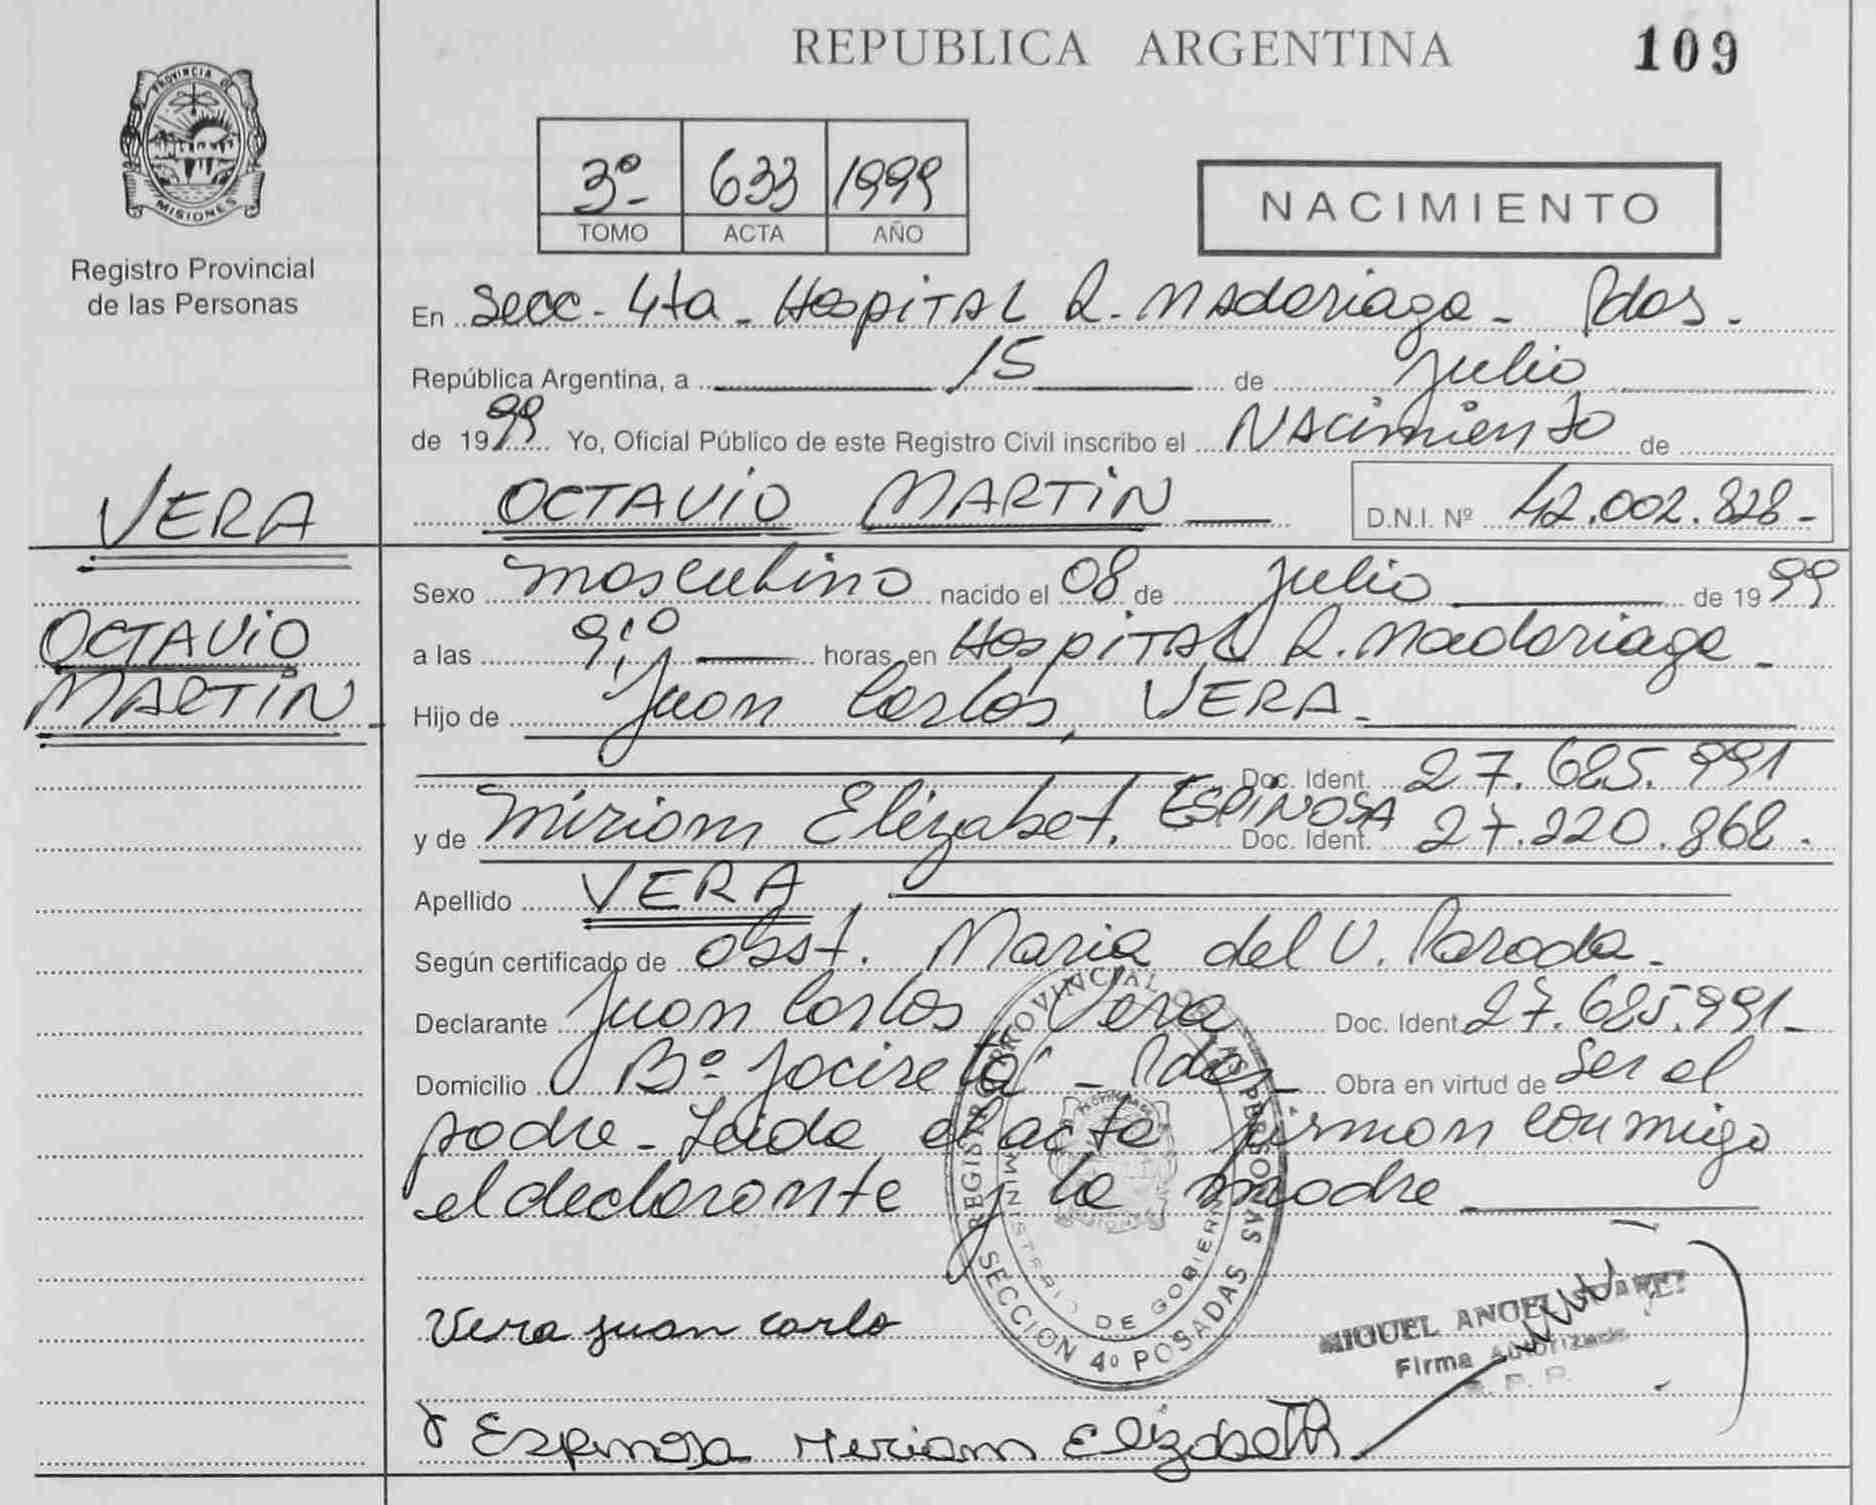 REPUBLICA ARGENTINA 109
PROVINCIA DE
MISIONES
Registro Provincial
de las Personas
3º- 633 1999
TOMO ACTA AÑO
NACIMIENTO
En Secc- 4ta - HospiTAL R. Madariaga - Pdas.
República Argentina, a 15 de Julio
de 1999 Yo, Oficial Público de este Registro Civil inscribo el NAcimiento de
VERA
OCTAVIO MARTIN D.N.I. Nº 42.002.828-
Sexo masculino nacido el 08 de Julio de 1999
OCTAVIO
MARTIN
a las horas en HospiTAL R. Madariaga -
Hijo de Juan Carlos, VERA-
Doc. Ident. 27.685.991
y de Miriam Elizabet. ESPINOSA Doc. Ident. 27.220.868.
Apellido VERA
Según certificado de obst. Maria del V. Paroda-
Declarante Juan Carlos Vera Doc. Ident. 27.685.991-
Domicilio Bº Jacireta - Pdas- Obra en virtud de Ser el
padre- Leida el acta firman conmigo
el declarante y la madre
REGISTRO PROVINCIAL DE LAS PERSONAS
MINISTERIO DE GOBIERNO
SECCION 4º POSADAS
Vera juan carlo
MIGUEL ANGEL SUAREZ
Firma Autorizada
Espinosa Meriam Elizabeth